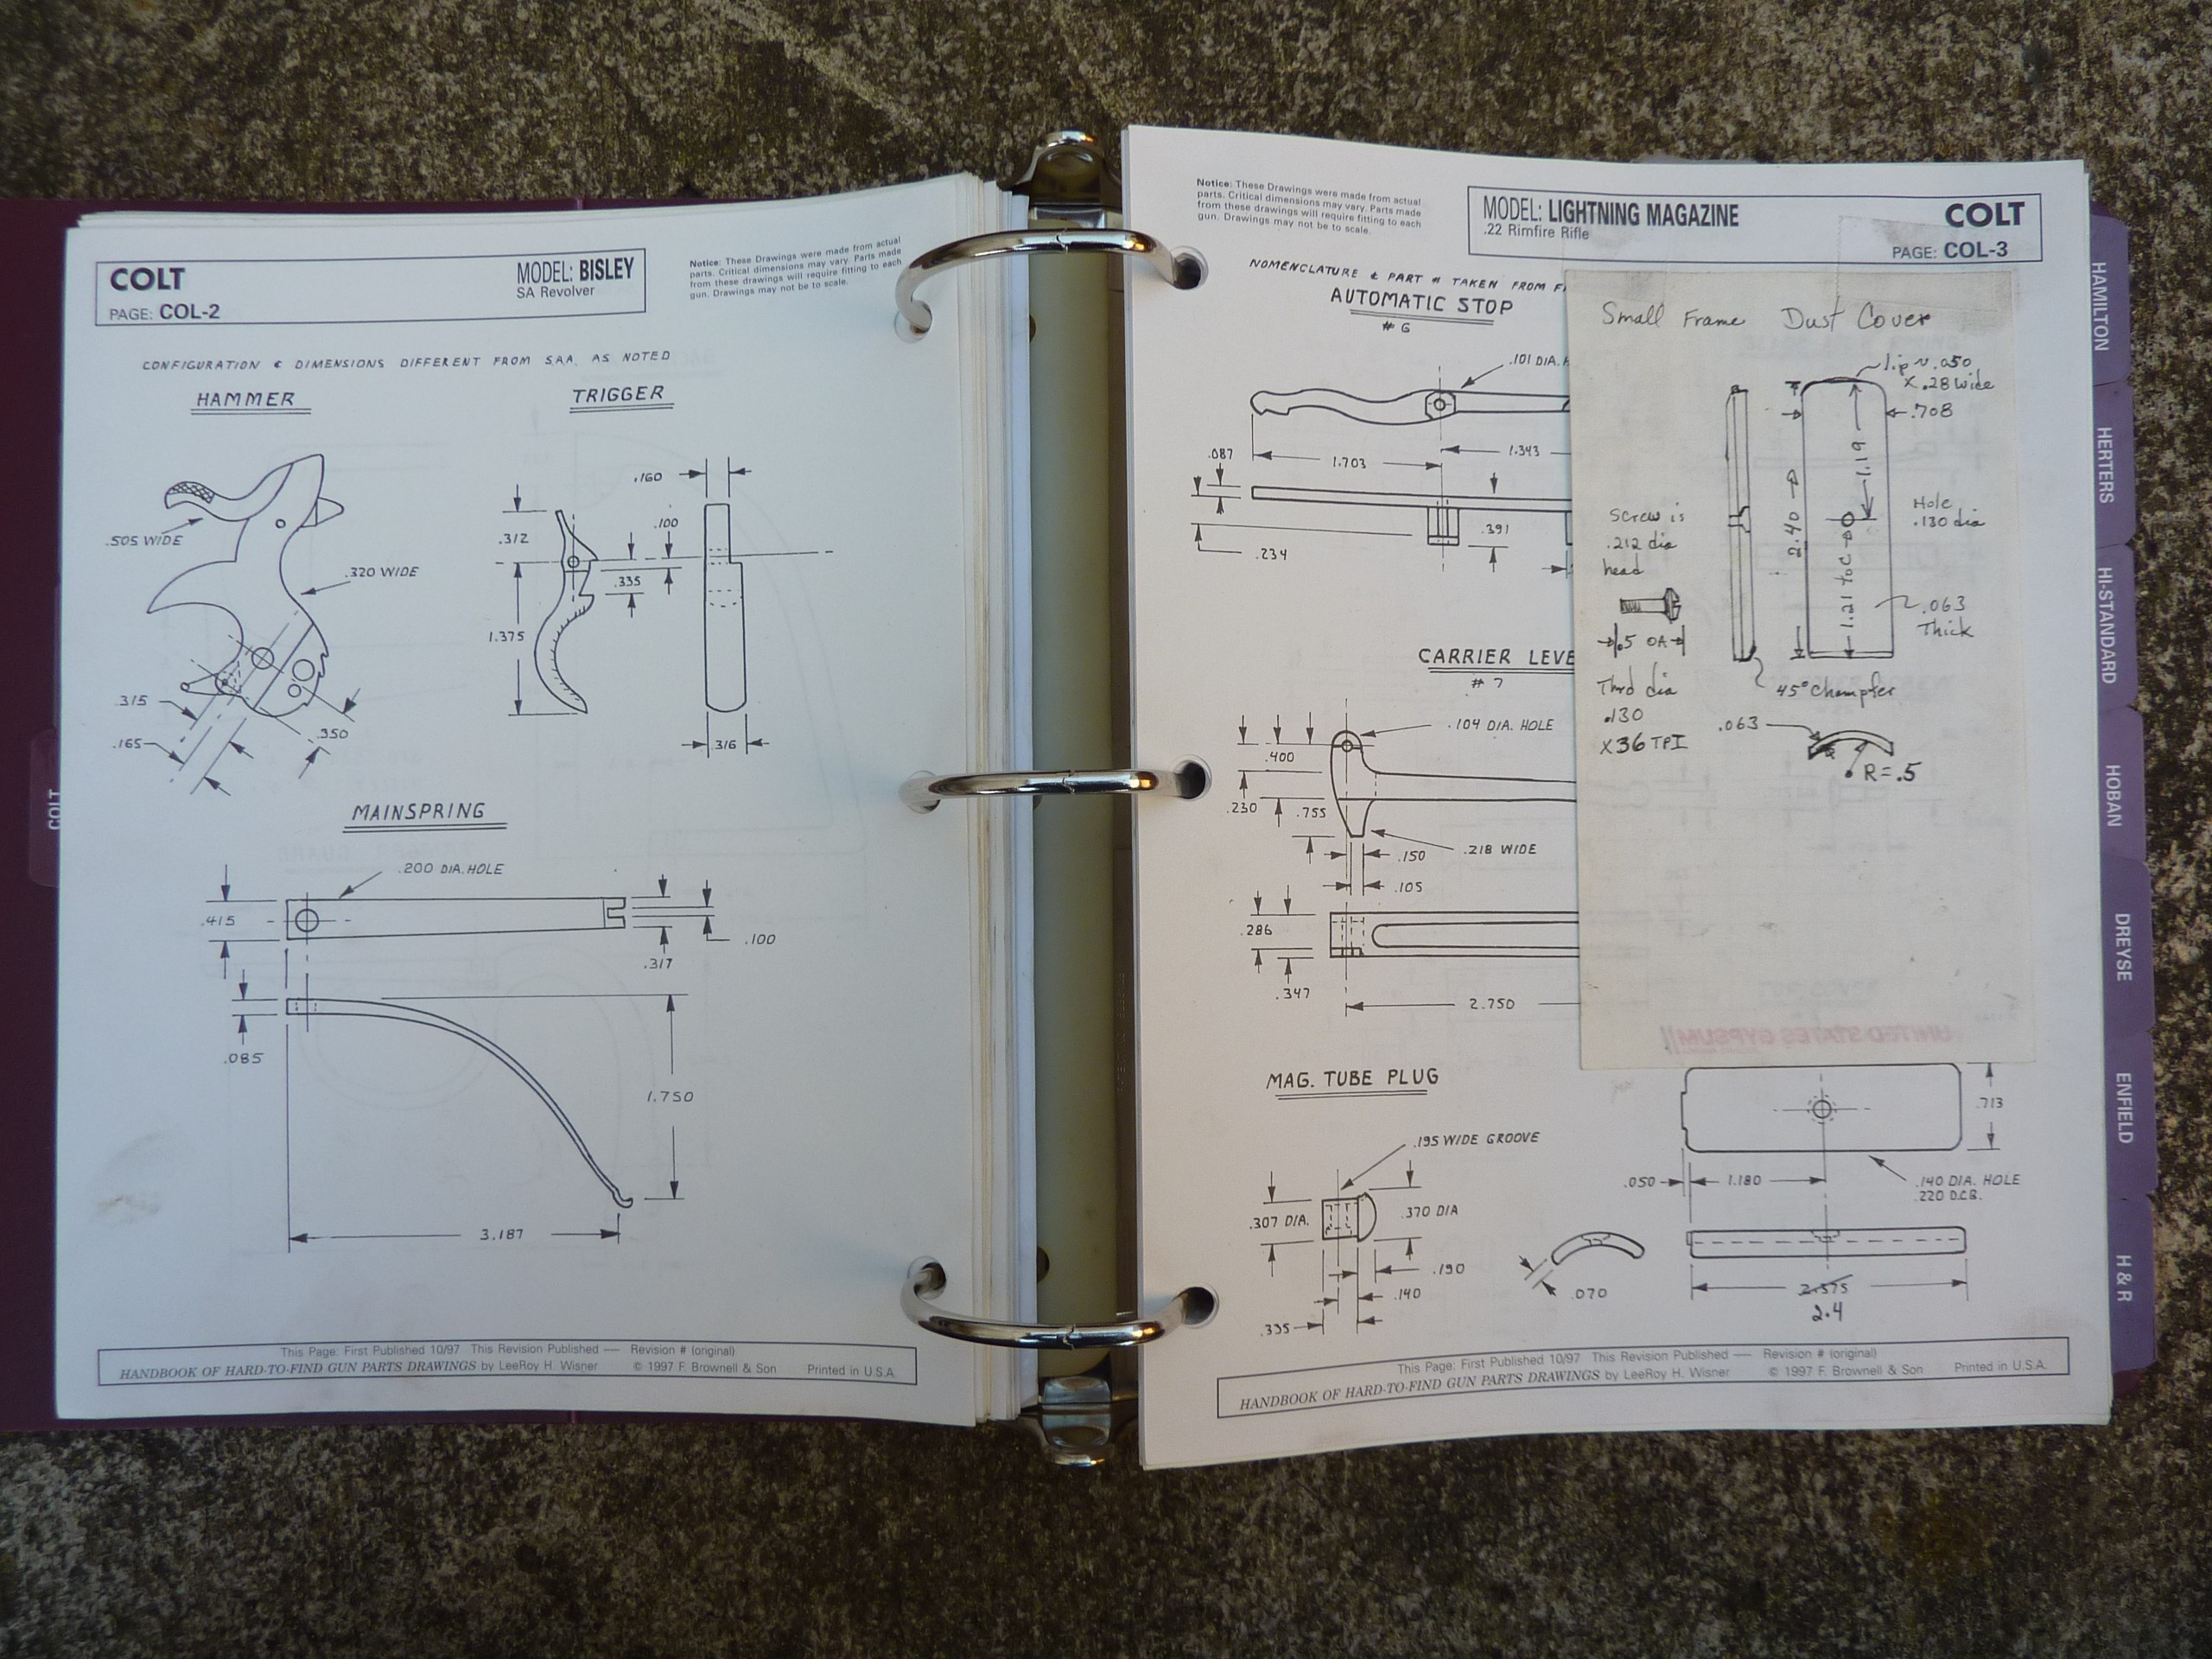 COLT
MODEL: BISLEY
SA Revolver
PAGE: COL-2
Notice: These Drawings were made from actual
parts. Critical dimensions may vary. Parts made
from these drawings will require fitting to each
gun. Drawings may not be to scale.
CONFIGURATION & DIMENSIONS DIFFERENT FROM S.A.A. AS NOTED
HAMMER
.505 WIDE
.320 WIDE
.315
.165
.350
TRIGGER
.160
.312
.100
.335
1.375
.316
MAINSPRING
.200 DIA. HOLE
.415
.100
.317
.085
1.750
3.187
This Page: First Published 10/97 This Revision Published — Revision # (original)
HANDBOOK OF HARD-TO-FIND GUN PARTS DRAWINGS by LeeRoy H. Wisner © 1997 F. Brownell & Son Printed in U.S.A.
COLT
Notice: These Drawings were made from actual
parts. Critical dimensions may vary. Parts made
from these drawings will require fitting to each
gun. Drawings may not be to scale.
MODEL: LIGHTNING MAGAZINE
.22 Rimfire Rifle
COLT
PAGE: COL-3
NOMENCLATURE & PART # TAKEN FROM
AUTOMATIC STOP
# 6
.101 DIA.
1.703
1.343
.087
.391
.234
CARRIER LEVE
# 7
.104 DIA. HOLE
.400
.230
.755
.218 WIDE
.150
.105
.286
.347
2.750
Small Frame Dust Cover
lip ~ .050
X .28 wide
.708
1.19
2.40
Hole
.130 dia
1.21 to C
.063
Thick
Screw is
.212 dia
head
.5 OA
Thrd dia
.130
X 36 TPI
45° Champfer
.063
R=.5
UNITED STATES GYPSUM
MAG. TUBE PLUG
.195 WIDE GROOVE
.307 DIA.
.370 DIA
.190
.140
.335
.713
.050
1.180
.140 DIA. HOLE
.220 D.C.B.
.070
2.375
2.4
This Page: First Published 10/97 This Revision Published — Revision # (original)
HANDBOOK OF HARD-TO-FIND GUN PARTS DRAWINGS by LeeRoy H. Wisner © 1997 F. Brownell & Son Printed in U.S.A.
HAMILTON
HERTERS
HI-STANDARD
HOBAN
DREYSE
ENFIELD
H & R